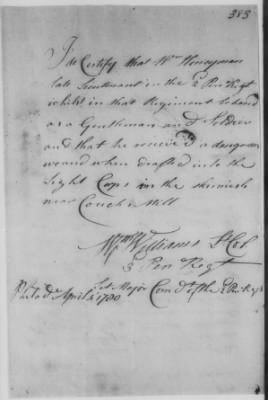 383
I do Certify that Wm Honeyman
late Lieutenant in the 2 Pen Regt
whilst in that Regiment
as a Gentleman and Soldier
and that he receiv'd a dangerous
wound when drafted into the
Light Cops in the skirmish
near Couch's Mill
Wm Williams Lt Col
3 Pen Regt
Philada April 1780
Late Major Comdt of the 2 Pen Regt